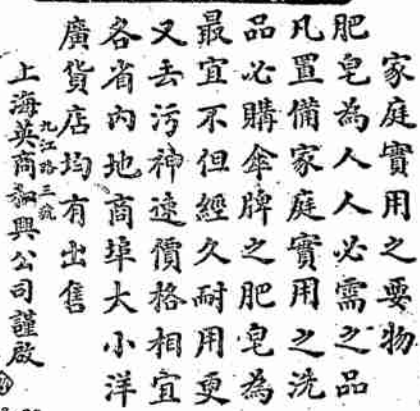 家庭實用之要物
肥皂為人人必需之品
凡置備家庭實用之洗
品必購傘牌之肥皂為
最宜不但經久耐用更
又去污神速價格相宜
各省內地商埠大小洋
廣貨店均有出售
九江路三號
上海英商興公司謹啟